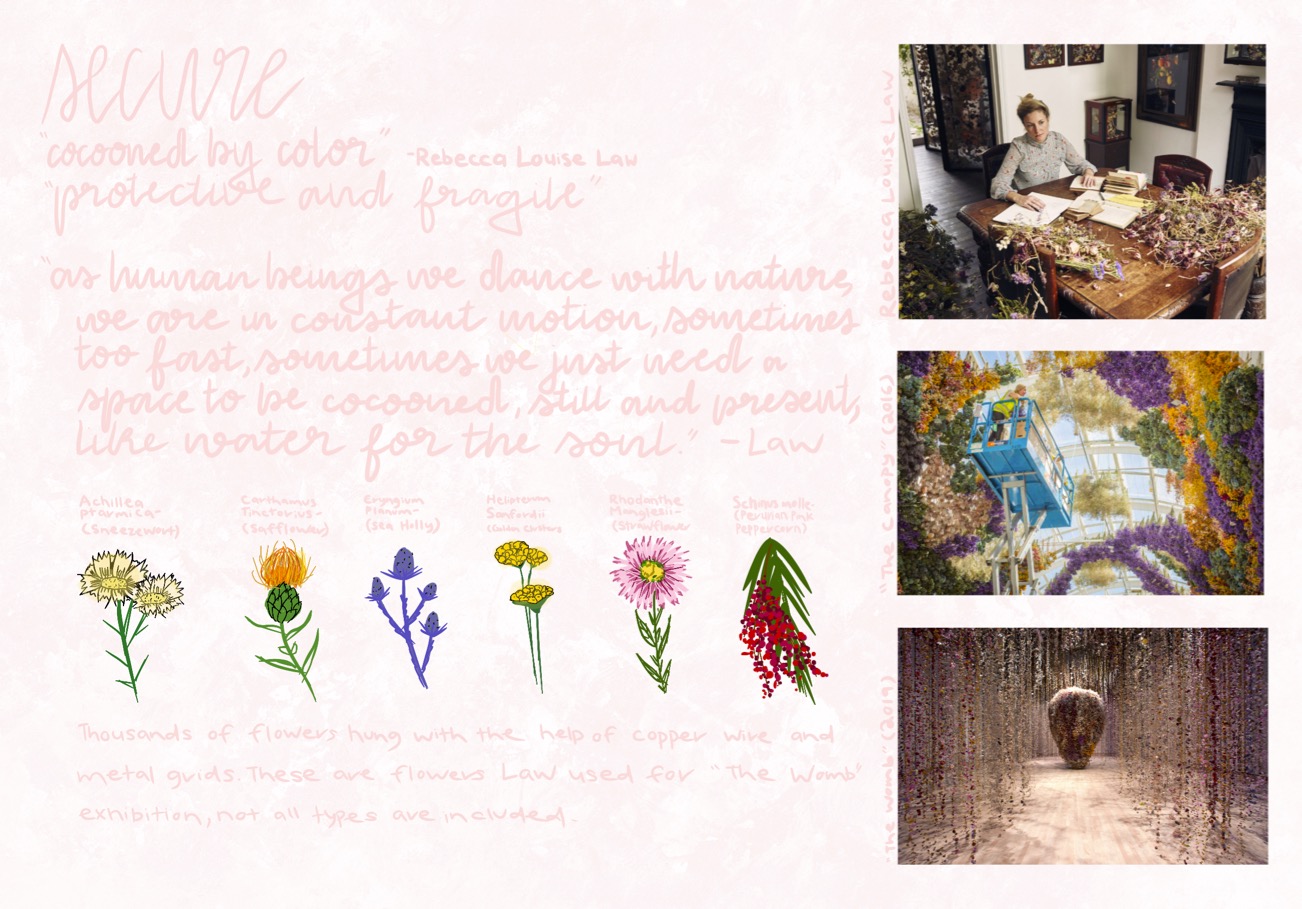 secure
"cocooned by color" -Rebecca Louise Law
"protective and fragile"
"as human beings we dance with nature,
we are in constant motion, sometimes
too fast, sometimes we just need a
space to be cocooned, still and present,
like water for the soul." -Law
Achillea
ptarmica-
(Sneezewort)
Carthamus
Tinctorius-
(Safflower)
Eryngium
Planum-
(Sea Holly)
Helipterum
Sanfordii
(Golden Clusters
Rhodanthe
Manglesii-
(Strawflower
Schinus molle-
(Peruvian Pink
Peppercorn)
Thousands of flowers hung with the help of copper wire and
metal grids. These are flowers Law used for "The Womb"
exhibition, not all types are included.
Rebecca Louise Law
"The Canopy" (2016)
"The Womb" (2019)